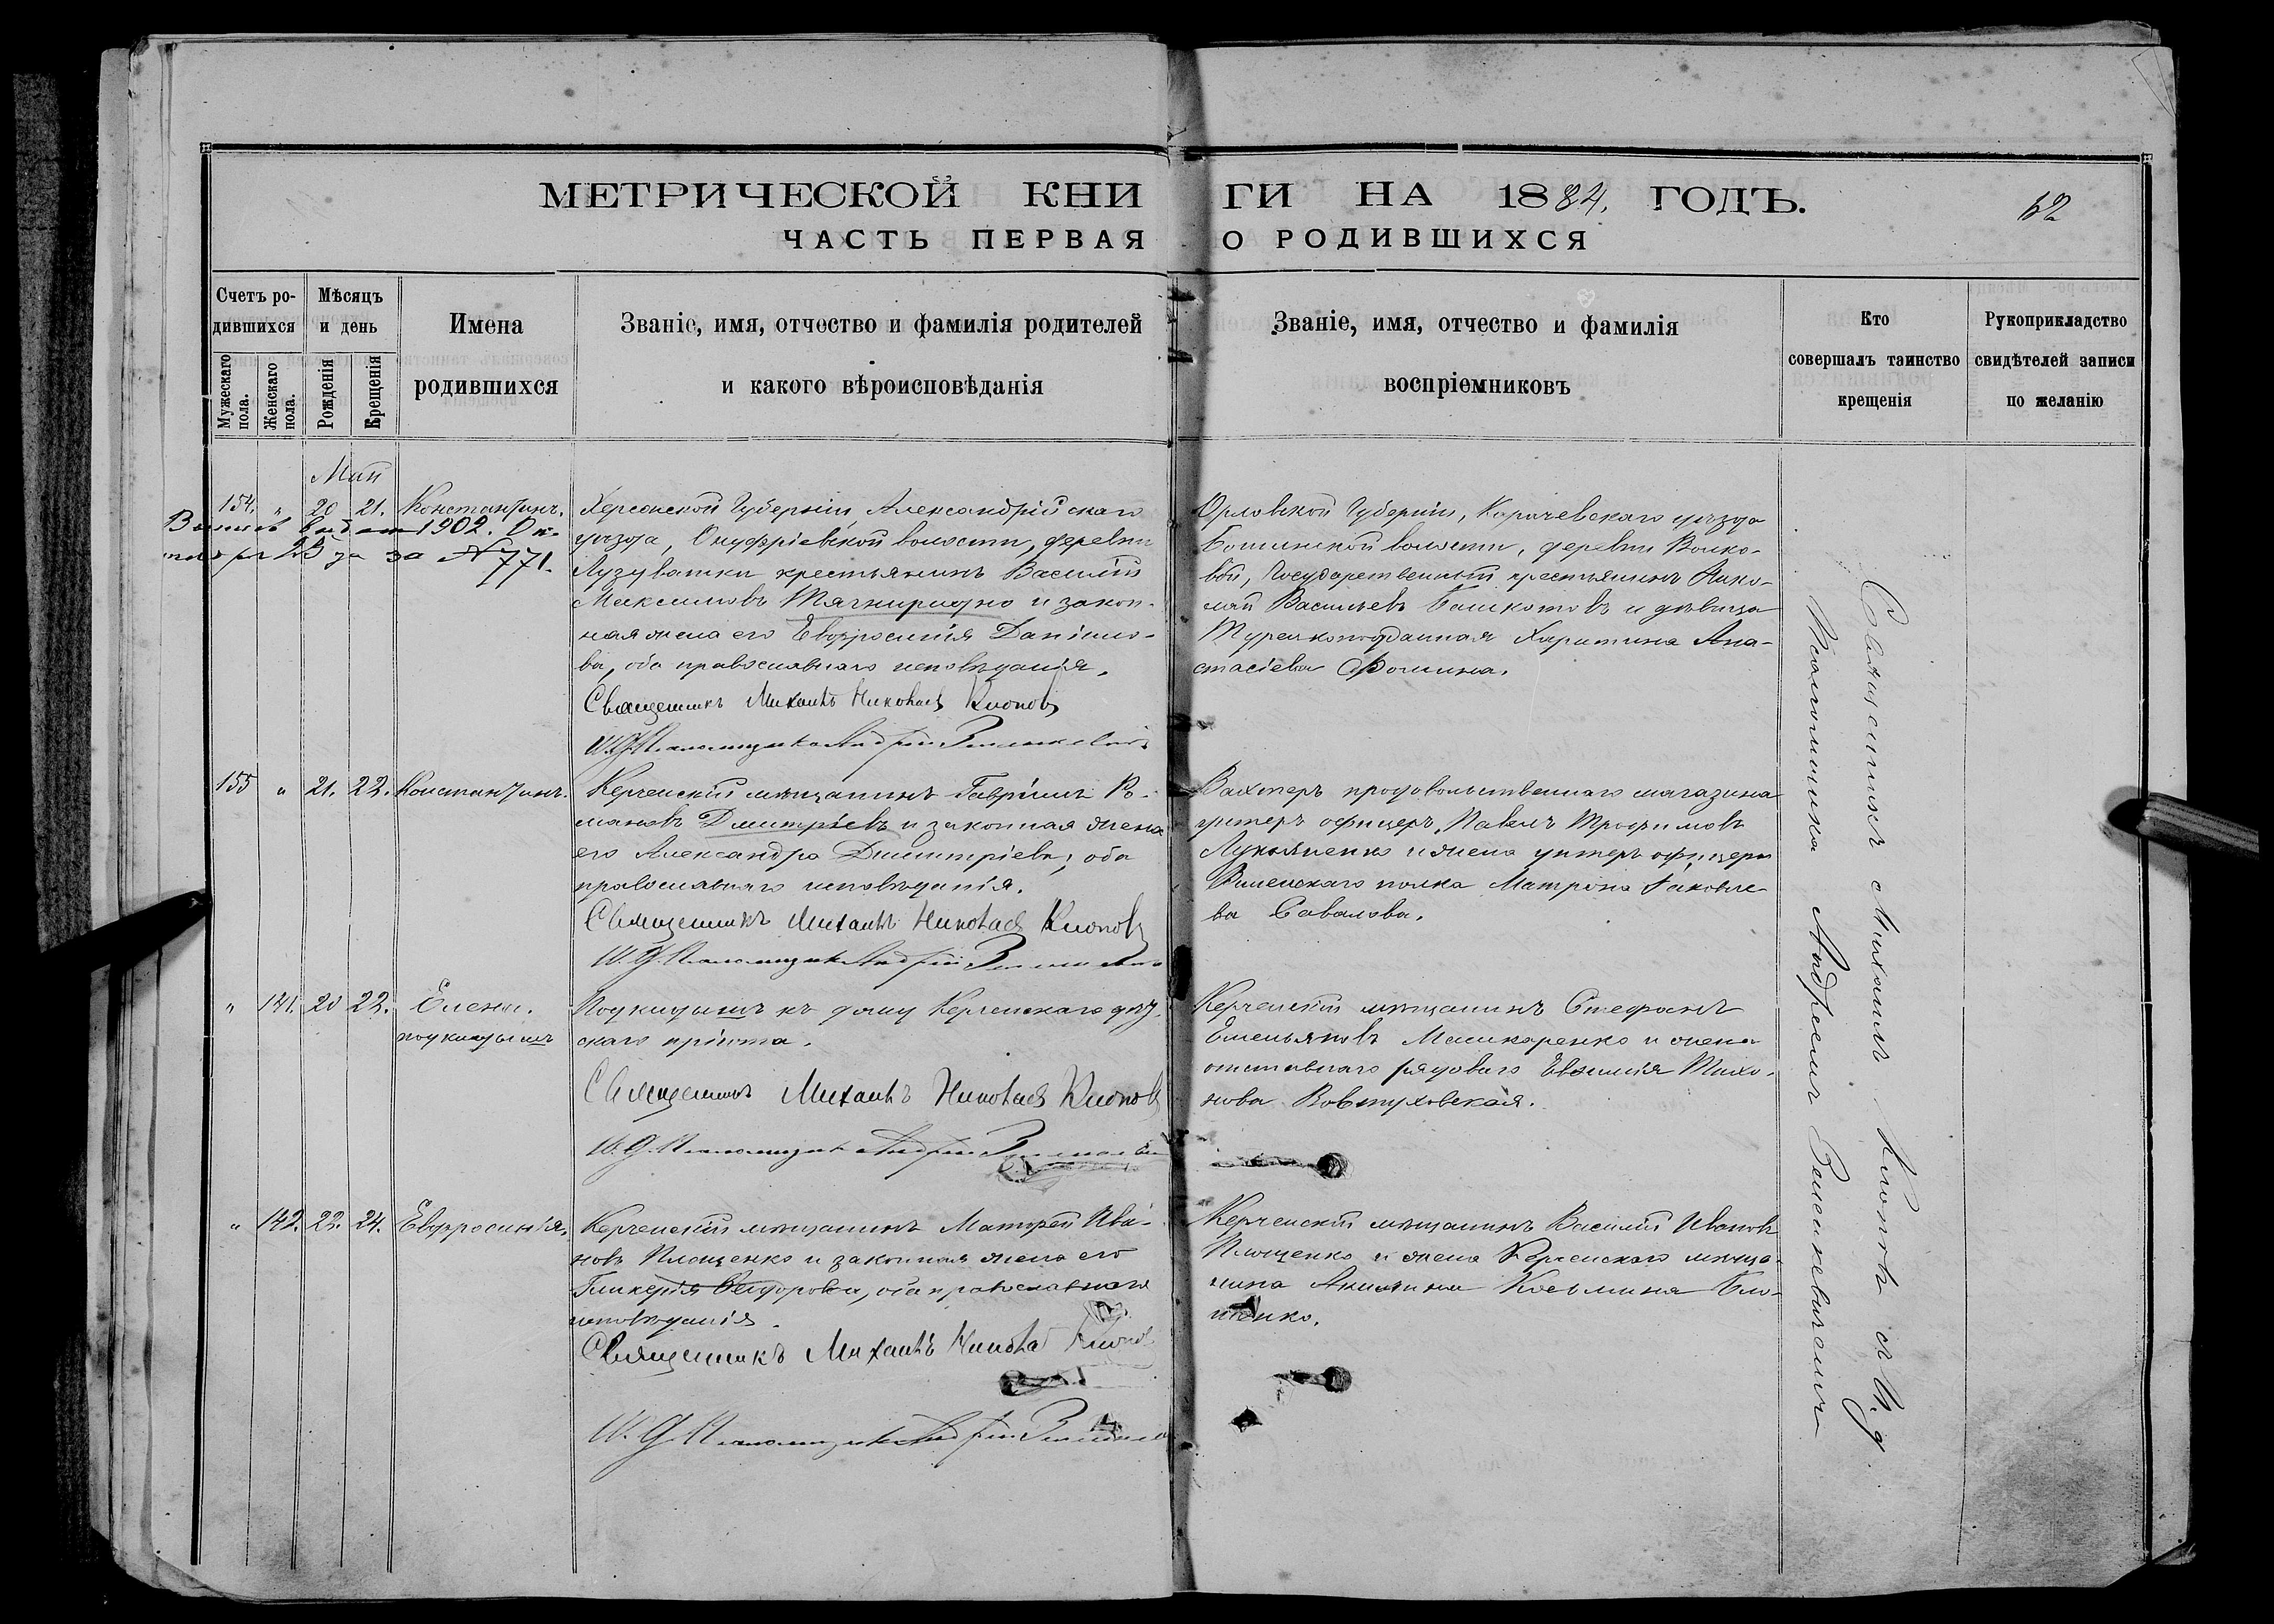 МЕТРИЧЕСКОЙ КНИГИ НА 1884. ГОДЪ.
62
ЧАСТЬ ПЕРВАЯ О РОДИВШИХСЯ
Счетъ родившихся
Мужескаго пола.
Женскаго пола.
Мѣсяцъ и день
Рожденія
Крещенія
Имена
родившихся
Званіе, имя, отчество и фамилія родителей
и какого вѣроисповѣданія
Званіе, имя, отчество и фамилія
воспріемниковъ
Кто
совершалъ таинство
крещенія
Рукоприкладство
свидѣтелей записи
по желанію
Май
154. " 20 21. Константинъ.
1902. Ок-
за № 771.
Херсонской Губерніи, Александрійскаго
уѣзда, Онуфріевской волости, деревни
Лузуватки крестьянинъ Василій
Максимовъ Тягнирядно и закон-
ная жена его Евфросинія Данило-
ва, оба православнаго исповѣданія.
Священникъ Михаилъ Николаевъ Клоповъ
И. д. Псаломщика Андрей Зеленкевичъ
Орловской Губерніи, Карачевскаго уѣзда
волости, деревни Волко-
вой, Государственный крестьянинъ Нико-
лай Васильевъ и дѣвица
Турецкоподанная Харитина Ана-
стасіева Фомина.
155 " 21. 22. Константинъ.
Керченскій мѣщанинъ Гавріилъ Ро-
мановъ Дмитріевъ и законная жена
его Александра Димитріева, оба
православнаго исповѣданія.
Священникъ Михаилъ Николаевъ Клоповъ
И. д. Псаломщика Андрей
Вахтеръ продовольственнаго магазина
унтеръ офицеръ, Павелъ Трофимовъ
Лукьяненко и жена унтеръ офицера
Виленскаго полка Матрона Яковле-
ва Савалова.
" 141. 20 22. Елена.
подкидышъ
Подкидышъ къ дому Керченскаго дѣт-
скаго пріюта.
Священникъ Михаилъ Николаевъ Клоповъ
И. д. Псаломщика Андрей
Керченскій мѣщанинъ Стефанъ
Емельяновъ Машкаренко и жена
отставнаго рядоваго Евфимія Тихо-
нова Вовтуховская.
" 142. 22. 24. Евфросинія.
Керченскій мѣщанинъ Матфей Ива-
новъ Площенко и законная жена его
Гликерія Ѳедорова, оба православнаго
исповѣданія.
Священникъ Михаилъ
И. д. Псаломщика Андрей
Керченскій мѣщанинъ Василій Ивановъ
Площенко и жена Керченскаго мѣща-
нина Акилина Косьмина
Священникъ Михаилъ Клоповъ съ И. д.
Псаломщика Андреемъ Зеленкевичемъ